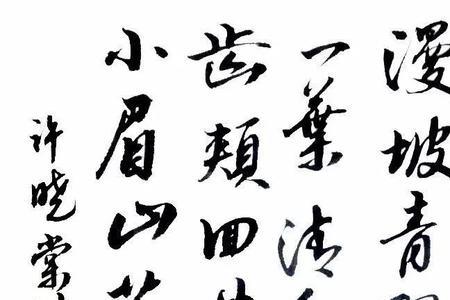 漫坡青
一葉清
齿頰回
小眉山
许晓棠